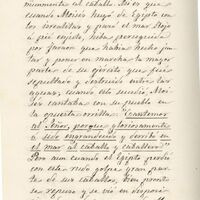 minmente al caballo. Asi es que
cuando Moisés huyó de Egipto con
los israelitas y pasó el mar Rojo
a pié enjuto, hubo perseguido
por Faraon que habia hecho jun
tar y poner en marcha la mayor
parte de su ejército que fué
sepultado y destruido entre las
aguas, cuando esto sucedió, Moi-
sés cantaba con su pueblo en
la opuesta orilla: "Cantemos
al Señor, porque gloriosamente
se ha engrandecido y derribó en
el mar al caballo y caballero"
Pero aun cuando el Egipto perdió
con esta rudo golpe gran par-
te de sus caballos, bien pronto
se repuso y se vió en disposi